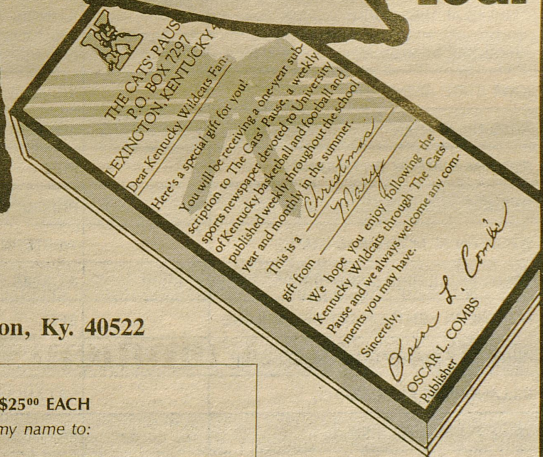 THE CATS' PAUSE
P.O. BOX 7297
LEXINGTON, KENTUCKY
Dear Kentucky Wildcats Fan:
Here's a special gift for you!
You will be receiving a one-year sub-
scription to The Cats' Pause, a weekly
sports newspaper devoted to University
of Kentucky basketball and football and
published weekly throughout the school
year and monthly in the summer.
This is a Christmas
gift from Mary
We hope you enjoy following the
Kentucky Wildcats through The Cats'
Pause and we always welcome any com-
ments you may have.
Sincerely,
Oscar L. Combs
OSCAR L. COMBS
Publisher
on, Ky. 40522
$25⁰⁰ EACH
my name to: